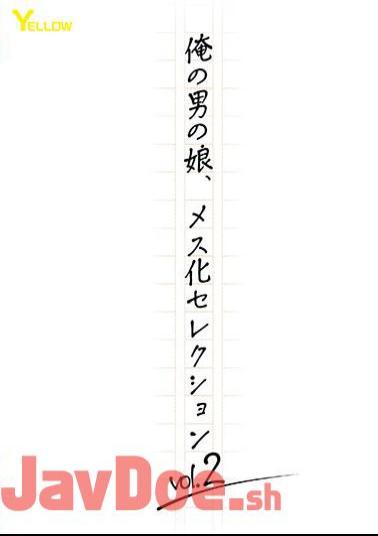 YELLOW
俺の男の娘、メス化セレクション
vol.2
JavDoe.sh